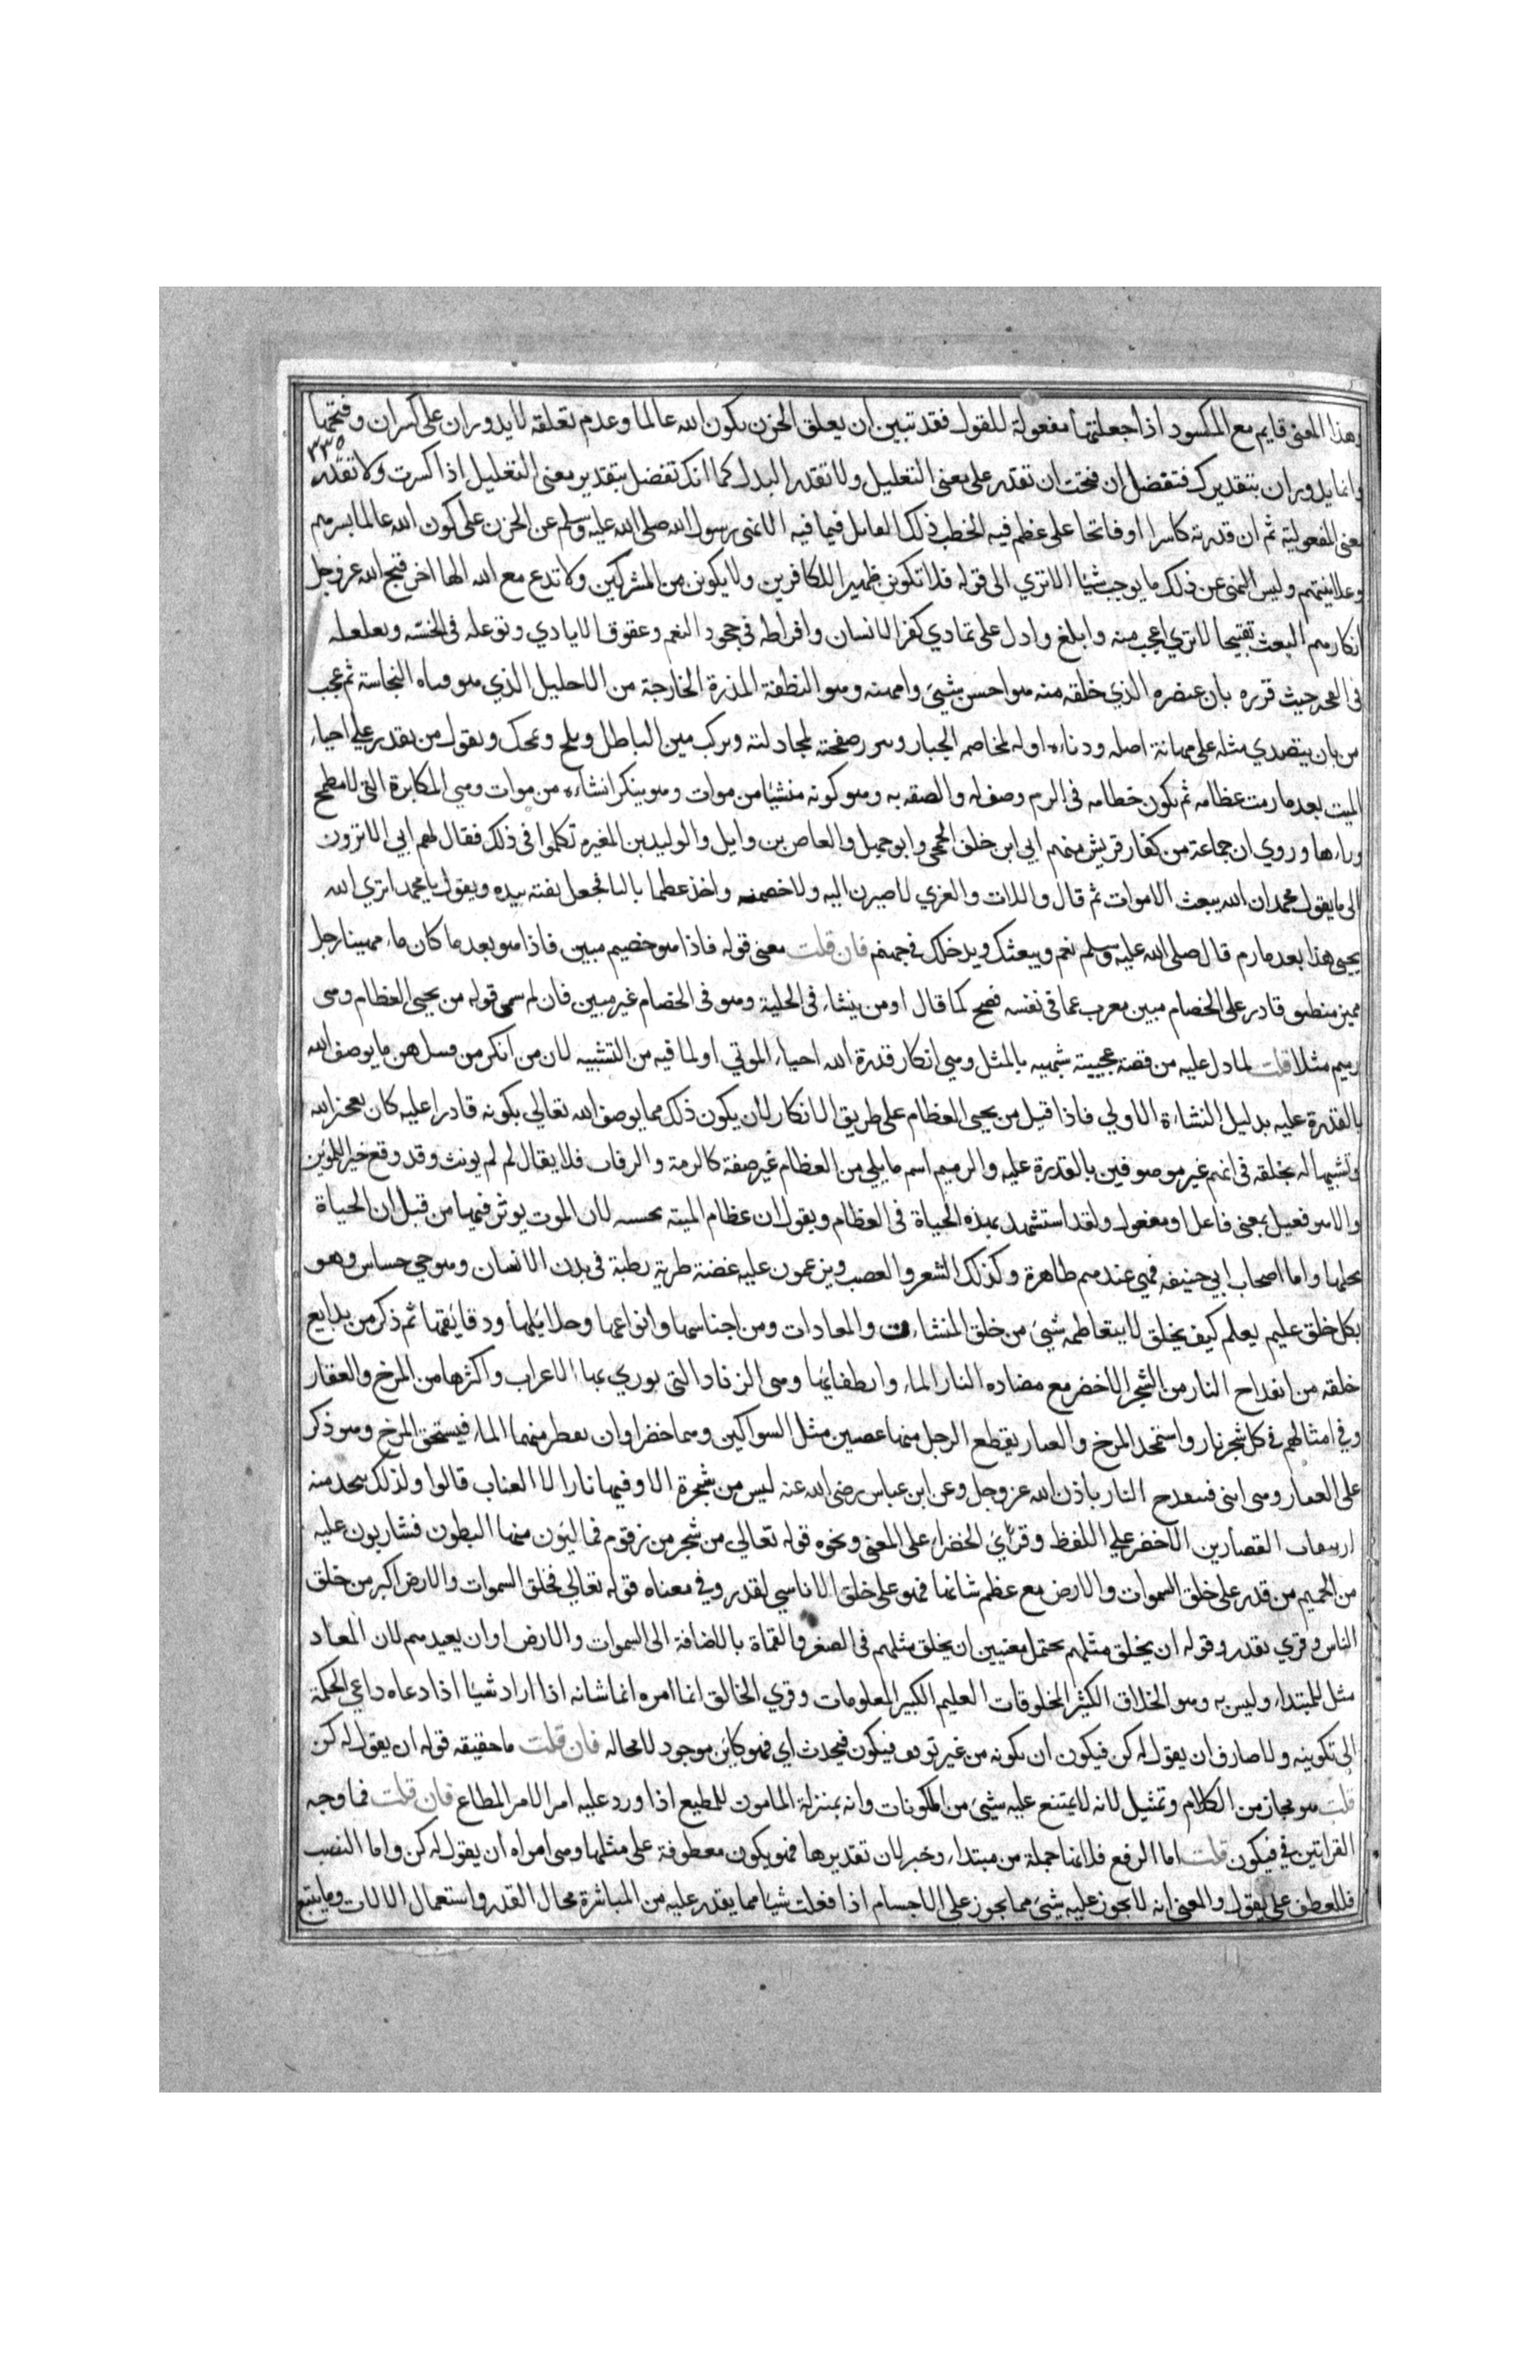 وهذا المعنى قايم مع المكسور اذا جعلتها مفعولة للقول فقد تبين ان يعلق الحزن بكون الله عالما وعدم تعلقه لا يدوران على كسران وفتحها
٢٣٥
وانما يدوران بتقديرك فتفضل ان فتحت ان تقدر على معنى التعليل ولا تقدر البدل كما انك تفضل بتقدير معنى التعليل اذا كسرت ولا تقدر
معنى المفعولية ثم ان قدرته كاسرا او فاتحا على عظم فيه الخطب ذلك القايل فيما فيه الا نهى رسول الله صلى الله عليه وسلم عن الحزن على كون الله عالما بسرهم
وعلانيتهم وليس النهى عن ذلك ما يوجب شيا الا ترى الى قوله فلا تكونن ظهيرا للكافرين ولا يكونن من المشركين ولا تدع مع الله الها اخر قبح الله عز وجل
انكارهم البعث تقبيحا لا ترى اعجب منه وابلغ وادل على تمادي كفر الانسان وافراطه في جحود النعم وعقوق الايادي وتوغله في الخسة وتغلغله
في القحة حيث قرره بان عنصره الذي خلقه منه هو اخس شيئ وامهنه وهو النطفة المذرة الخارجة من الاحليل الذي هو قناه النجاسة ثم عجب
من بان يتصدي مثله على مهانة اصله ودناءه اوله لمخاصمه الجبار وشرر صفحته لمجادلته ويركب متن الباطل ويلح وعحك ويقول من يقدر على احياء
الميت بعد ما رمت عظامه ثم يكون خطامه في الزم وصف له والصقه به وهو كونه منشيا من موات وهو ينكر انشاءه من موات وهي المكابرة التي لا مطمح
وراءها وروي ان جماعة من كفار قريش منهم ابي ابن خلف الجمحي وابو جهل والعاص بن وايل والوليد بن المغيره تكلموا في ذلك فقال لهم ابي الا ترون
الى ما يقول محمد ان الله يبعث الاموات ثم قال واللات والعزي لاصيرن اليه ولاخصمنه واخذ عظما باليا فجعل يفته بيده ويقول يا محمد اترى الله
يحيى هذا بعد ما رم قال صلى الله عليه وسلم نعم ويبعثك ويدخلك في جهنم فان قلت معنى قوله فاذا هو خصيم مبين فاذا هو بعد ما كان ماء مهينا رجل
مميز منطيق قادر على الخصام مبين معرب عما في نفسه فصيح كما قال اومن ينشاء في الحلية وهو في الخصام غير مبين فان لم سمى قوله من يحيى العظام وهى
رميم مثلا قلت لما دل عليه من قصة عجيبة شبيهه بالمثل وهي انكار قدرة الله احياء الموتي او لما فيه من التشبيه لان من انكر من قبيل هن ما يوصف الله
بالقدرة عليه بدليل النشاءة الاولي فاذا قيل من يحيى العظام على طريق الانكار لان يكون ذلك مما يوصف الله تعالى بكونه قادرا عليه كان يعجز الله
وتشبيها له بخلقه في انهم غير موصوفين بالقدرة عليه والرميم اسم ما بلي من العظام غير صفة كالرمة والرفات فلا يقال لم لم يونث وقد وقع خبر المونث
والا هو فعيل بمعنى فاعل او مفعول ولقد استشهد بهذه الحياة في العظام ويقول ان عظام الميته نجسه لان الموت يوثر فيها من قبل ان الحياة
تحلها واما اصحاب ابي حنيفه فهي عندهم طاهرة وكذلك الشعر والعصب ويزعمون عليه غضة طرية رطبة في بدن الانسان وهو حي حساس وهو
بكل خلق عليم يعلم كيف يخلق لا يتعاظمه شيئ من خلق المنشاءت والمعادات ومن اجناسها وانواعها وجلايلها ودقايقها ثم ذكر من بدايع
خلقه من انقداح النار من الشجر الاخضر مع مضاده النار الماء وانطفايها وهى الزناد التي توري بها الاعراب واكثرها من المرخ والعفار
وفي امثالهم في كل شجر نار واستمجد المرخ والعفار يقطع الرجل منها غصين مثل السواكين وهما خضراوان يقطر منهما الماء فيستحق المرخ وهو ذكر
على العفار وهى انثى فتنقدح النار باذن الله عز وجل وعن ابن عباس رضى الله عنه ليس من شجرة الا وفيها نار الا العناب قالوا ولذلك يتخذ منه
القصارين الاخضر على اللفظ وقرائ الخضراء على المعنى ونحوه قوله تعالي من شجر من زقوم فماليون منها البطون فشاربون عليه
من الحميم من قدر على خلق السموات والارض مع عظم شانها فهو على خلق الاناسي لقدر وفي معناه قوله تعالى لخلق السموات والارض اكبر من خلق
الناس وقري يقدر وقوله ان يخلق مثلهم يحتمل معنيين ان يخلق مثلهم في الصغر والقماة بالاضافة الى السموات والارض او ان يعيدهم لان المعاد
مثل للمبتداء وليس به وهو الخلاق الكثير المخلوقات العليم الكبير المعلومات وقري الخالق انما امره انما شانه اذا اراد شيا اذا دعاه داعي الحكمة
الى تكوينه ولا صارف ان يقول له كن فيكون ان يكونه من غير توقف فيكون فيحدث اي فهو كاين موجود لا محاله فان قلت ما حقيقه قوله ان يقول له كن
قلت هو مجاز من الكلام وتمثيل لانه لا يمتنع عليه شيئ من المكونات وانه بمنزلة المامون للمطيع اذا ورد عليه امر الامر المطاع فان قلت فما وجه
القراتين في فيكون قلت اما الرفع فلانها جملة من مبتداء وخبر لان تقديرها فهو يكون معطوفة على مثلها وهى امراه ان يقول له كن واما النصب
فللعطف على يقول والمعنى انه لا يجوز عليه شيئ مما يجوز على الاجسام اذا فعلت شيا مما يقدر عليه من المباشرة بمحال القدر واستعمال الالات وما يتبع